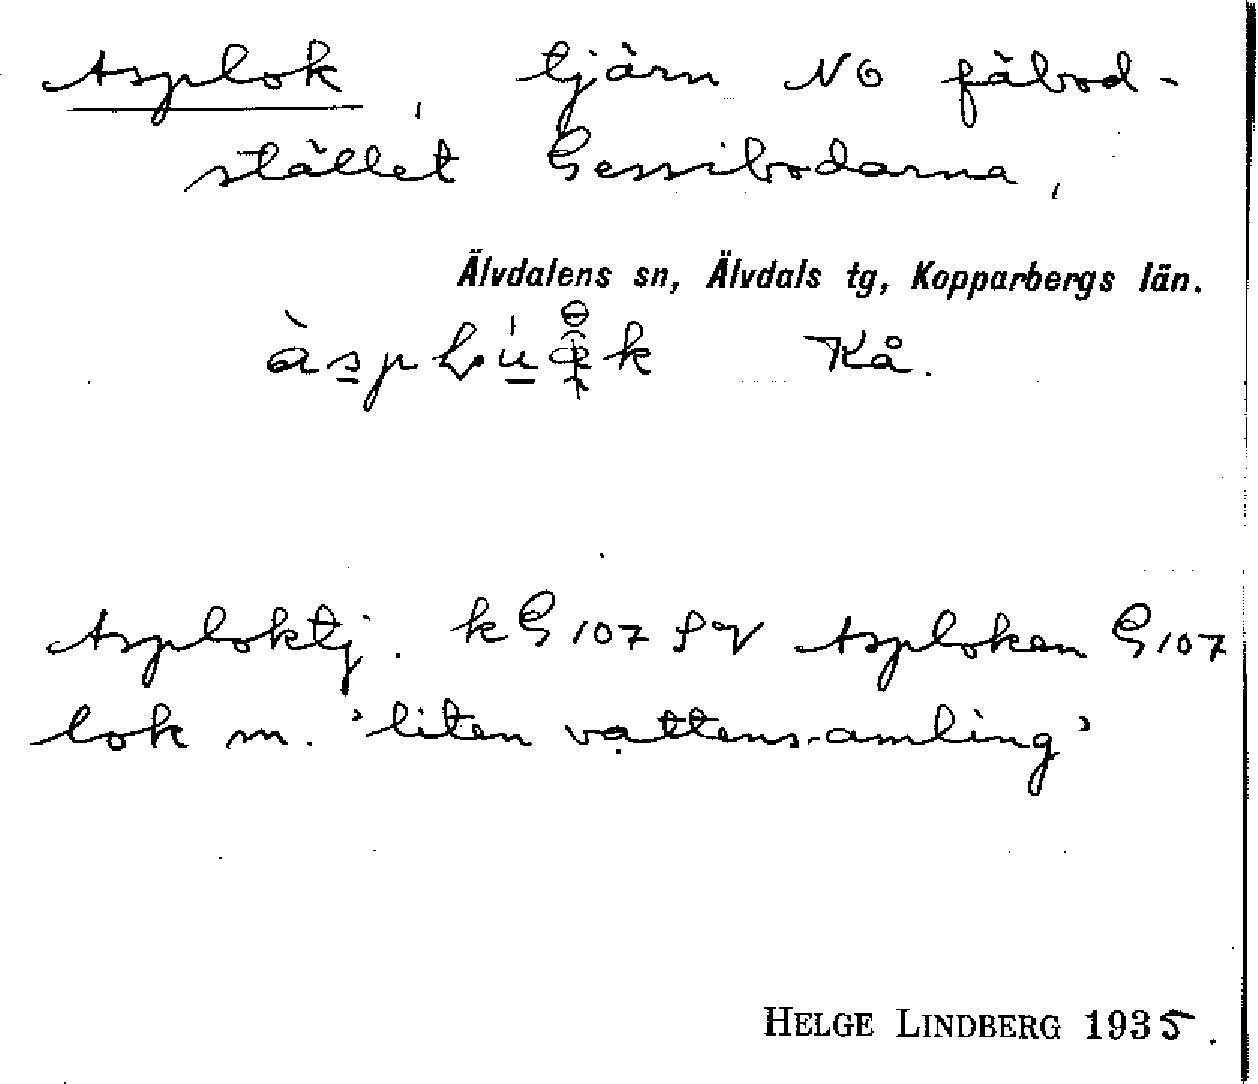 Asplok, tjärn NO fäbod-
stället Gessibodarna,
Älvdalens sn, Älvdals tg, Kopparbergs län.
Kå.
Asploktj. kG107 Asploken G107
lok m. 'liten vattensamling'
HELGE LINDBERG 1935.